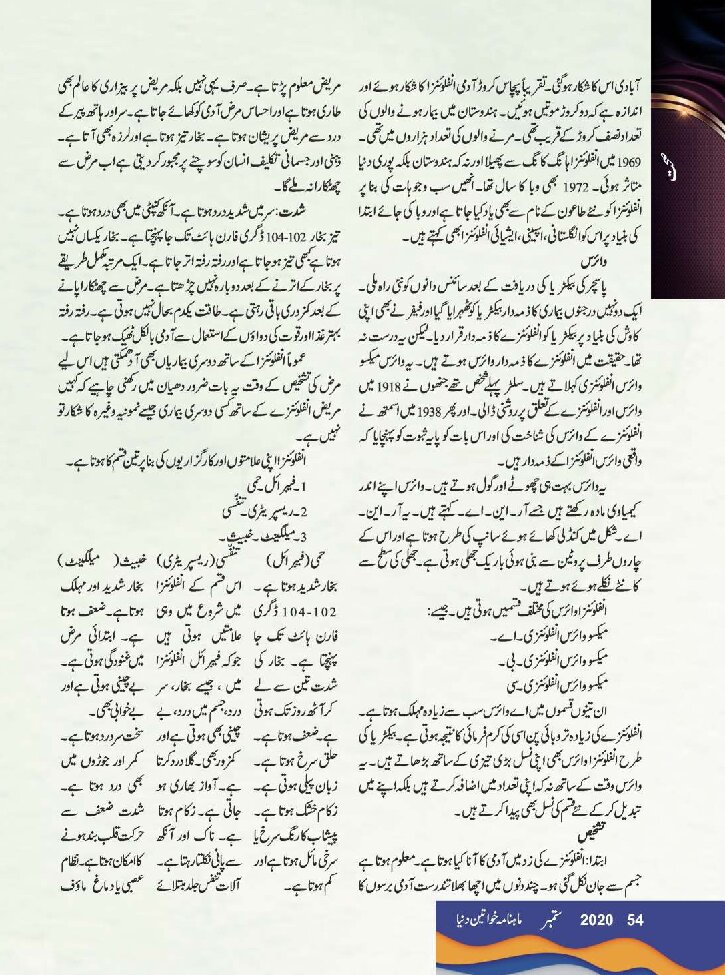 آبادی اس کا شکار ہوگئی۔ تقریباً پچاس کروڑ آدمی انفلوئنزا کا شکار ہوئے اور
اندازہ ہے کہ دو کروڑ موتیں ہوئیں۔ ہندوستان میں بیمار ہونے والوں کی
تعداد نصف کروڑ کے قریب تھی۔ مرنے والوں کی تعداد ہزاروں میں تھی۔
1969 میں انفلوئنزا ہانگ کانگ سے پھیلا اور نہ کہ ہندوستان بلکہ پوری دنیا
متاثر ہوئی۔ 1972 بھی وبا کا سال تھا۔ انھیں سب وجوہات کی بنا پر
انفلوئنزا کو نئے طاعون کے نام سے بھی یاد کیا جاتا ہے اور وبا کی جائے ابتدا
کی بنیاد پر اس کو انگلستانی، اسپینی، ایشیائی انفلوئنزا بھی کہتے ہیں۔
وائرس
پاسچر کی بیکٹریا کی دریافت کے بعد سائنس دانوں کو نئی راہ ملی۔
ایک دو نہیں درجنوں بیماری کا ذمہ دار بیکٹریا کو ٹھہرایا گیا اور فیفر نے بھی اپنی
کاوش کی بنیاد پر بیکٹریا کو انفلوئنزے کا ذمہ دار قرار دیا۔ لیکن یہ درست نہ
تھا۔ حقیقت میں انفلوئنزے کا ذمہ دار وائرس ہوتے ہیں۔ یہ وائرس میکسو
وائرس انفلوئنزی کہلاتے ہیں۔ سلٹر پہلے شخص تھے جنھوں نے 1918 میں
وائرس اور انفلوئنزے کے تعلق پر روشنی ڈالی۔ اور پھر 1938 میں اسمتھ نے
انفلوئنزے کے وائرس کی شناخت کی اور اس بات کو پایہ ثبوت کو پہنچایا کہ
واقعی وائرس انفلوئنزا کے ذمہ دار ہیں۔
یہ وائرس بہت ہی چھوٹے اور گول ہوتے ہیں۔ وائرس اپنے اندر
کیمیاوی مادہ رکھتے ہیں جسے آر۔ این۔ اے۔ کہتے ہیں۔ یہ آر۔ این۔
اے۔ شکل میں کنڈلی کھائے ہوئے سانپ کی طرح ہوتا ہے اور اس کے
چاروں طرف پروٹین سے بنی ہوئی باریک جھلی ہوتی ہے۔ جھلی کی سطح سے
کانٹے نکلے ہوئے ہوتے ہیں۔
انفلوئنزا وائرس کی مختلف قسمیں ہوتی ہیں۔ جیسے:
میکسو وائرس انفلوئنزی۔ اے۔
میکسو وائرس انفلوئنزی۔ بی۔
میکسو وائرس انفلوئنزی۔ سی
ان تینوں قسموں میں اے وائرس سب سے زیادہ مہلک ہوتا ہے۔
انفلوئنزے کی زیادہ تر وبائی پن اسی کی کرم فرمائی کا نتیجہ ہوتی ہے۔ بیکٹریا کی
طرح انفلوئنزا وائرس بھی اپنی نسل بڑی تیزی کے ساتھ بڑھاتے ہیں۔ یہ
وائرس وقت کے ساتھ نہ کہ اپنی تعداد میں اضافہ کرتے ہیں بلکہ اپنے میں
تبدیل کر کے نئے قسم کی نسل بھی پیدا کرتے ہیں۔
تشخیص
ابتدا: انفلوئنزے کی زد میں آدمی کا آنا کیا ہوتا ہے۔ معلوم ہوتا ہے
جسم سے جان نکل گئی ہو۔ چند دنوں میں اچھا بھلا تندرست آدمی برسوں کا
مریض معلوم پڑتا ہے۔ صرف یہی نہیں بلکہ مریض پر بیزاری کا عالم بھی
طاری ہوتا ہے اور احساس مرض آدمی کو کھائے جاتا ہے۔ سر اور ہاتھ پیر کے
درد سے مریض پریشان ہوتا ہے۔ بخار تیز ہوتا ہے اور لرزہ بھی آتا ہے۔
ذہنی اور جسمانی تکلیف انسان کو سوچنے پر مجبور کر دیتی ہے اب مرض سے
چھٹکارا نہ ملے گا۔
شدت: سر میں شدید درد ہوتا ہے۔ آنکھ کنپٹی میں بھی درد ہوتا ہے۔
تیز بخار 102-104 ڈگری فارن ہائٹ تک جا پہنچتا ہے۔ بخار یکساں نہیں
ہوتا ہے کبھی تیز ہو جاتا ہے اور رفتہ رفتہ اتر جاتا ہے۔ ایک مرتبہ مکمل طریقے
پر بخار کے اترنے کے بعد دوبارہ نہیں چڑھتا ہے۔ مرض سے چھٹکارا پانے
کے بعد کمزوری باقی رہتی ہے۔ طاقت یکدم بحال نہیں ہوتی ہے۔ رفتہ رفتہ
بہتر غذا اور قوت کی دواؤں کے استعمال سے آدمی بالکل ٹھیک ہو جاتا ہے۔
عموماً انفلوئنزا کے ساتھ دوسری بیماریاں بھی آ دھمکتی ہیں اس لیے
مرض کی تشخیص کے وقت یہ بات ضرور دھیان میں رکھنی چاہیے کہ کہیں
مریض انفلوئنزے کے ساتھ کسی دوسری بیماری جیسے نمونیہ وغیرہ کا شکار تو
نہیں ہے۔
انفلوئنزا اپنی علامتوں اور کارگزاریوں کی بنا پر تین قسم کا ہوتا ہے۔
1۔ فیبرائل۔ حمی
2۔ ریسپریٹری۔ تنفسی
3۔ میلگنیٹ۔ خبیث۔
حمی (فیبرائل)
بخار شدید ہوتا ہے۔
102-104 ڈگری
فارن ہائٹ تک جا
پہنچتا ہے۔ بخار کی
شدت تین سے لے
کر آٹھ روز تک ہوتی
ہے۔ ضعف ہوتا ہے۔
حلق سرخ ہوتا ہے۔
زبان پیلی ہوتی ہے۔
زکام خشک ہوتا ہے۔
پیشاب کا رنگ سرخ یا
سرخی مائل ہوتا ہے اور
کم ہوتا ہے۔
تنفسی (ریسپریٹری)
اس قسم کے انفلوئنزا
میں شروع میں وہی
علامتیں ہوتی ہیں
جو کہ فیبرائل انفلوئنزا
میں، جیسے بخار، سر
درد، جسم میں درد، بے
چینی بھی ہوتی ہے اور
کمزور بھی۔ گلا درد کرتا
ہے۔ آواز بھاری ہو
جاتی ہے۔ زکام ہوتا
ہے۔ ناک اور آنکھ
سے پانی نکلتا رہتا ہے۔
آلات تنفس جلد مبتلائے
خبیث (میلگنیٹ)
بخار شدید اور مہلک
ہوتا ہے۔ ضعف ہوتا
ہے۔ ابتدائی مرض
میں غنودگی ہوتی ہے۔
بے چینی ہوتی ہے اور
بے خوابی بھی۔
سخت سر درد ہوتا ہے۔
کمر اور جوڑوں میں
بھی درد ہوتا ہے۔
شدت ضعف سے
حرکت قلب بند ہونے
کا امکان ہوتا ہے۔ نظام
عصبی یا دماغ ماؤف
صحت
54 2020 ستمبر ماہنامہ خواتین دنیا